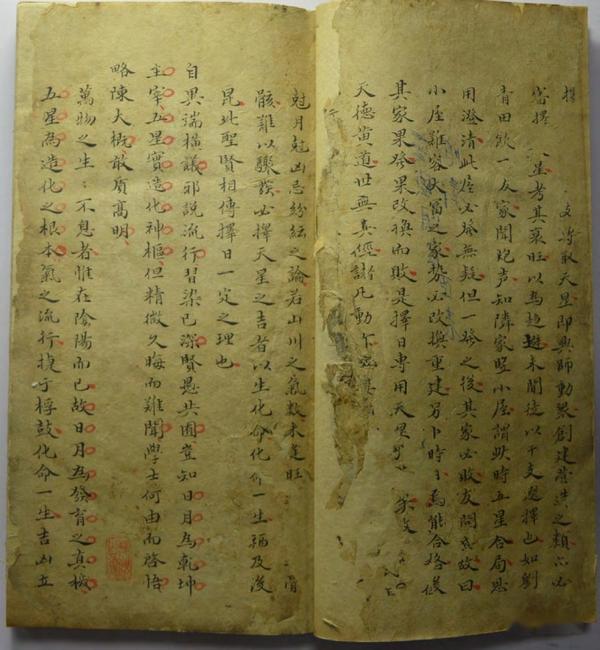 擇
當擇 星考其衰旺以為趨避未聞徒以干支選擇也如劉
支時取天星即興師動眾創建營造之類亦必
青田飲一友家聞炮声知隣家竪小屋謂此時五星合局思
用澄清此屋必發無疑但一發之後其家必敗友問其故曰
小屋難容大富之家勢必改換重建另卜時日焉能合格候
其家果發果改換而敗是擇日專用天星
天德黃道世無真經諸凡動作
尅月尅凶忌紛紜之論若山川之氣數未逢旺
骸難以驟發必擇天星之吉者以生化命化命一生福及後
昆此聖賢相傳擇日一定之理也
自異端橫議邪說流行習染已深賢愚共囿豈知日月為乾坤
主宰五星實造化神樞但精微久晦而難聞學士何由而啓悟
略陳大概敢質高明
萬物之生生不息者惟在陰陽而已故日月為發育之真機
五星為造化之根本氣之流行捷于桴鼓化命一生吉凶立